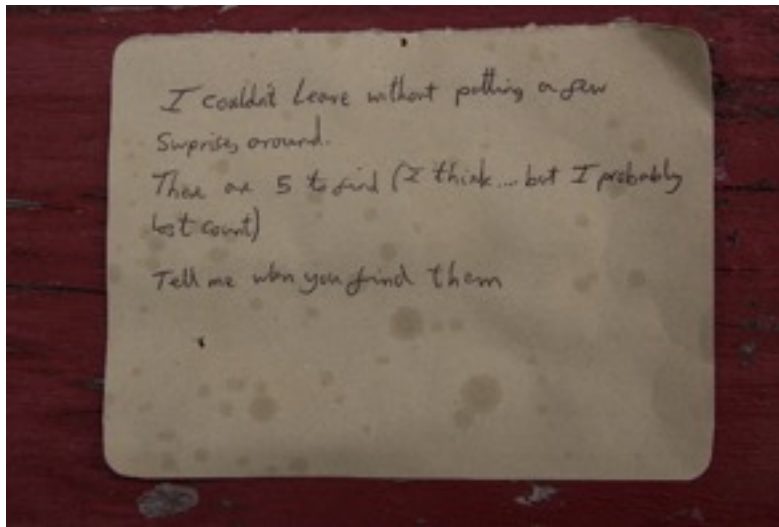 I couldn't Leave without putting a few
Surprises around.
There are 5 to find (I think... but I probably
lost count)
Tell me when you find them